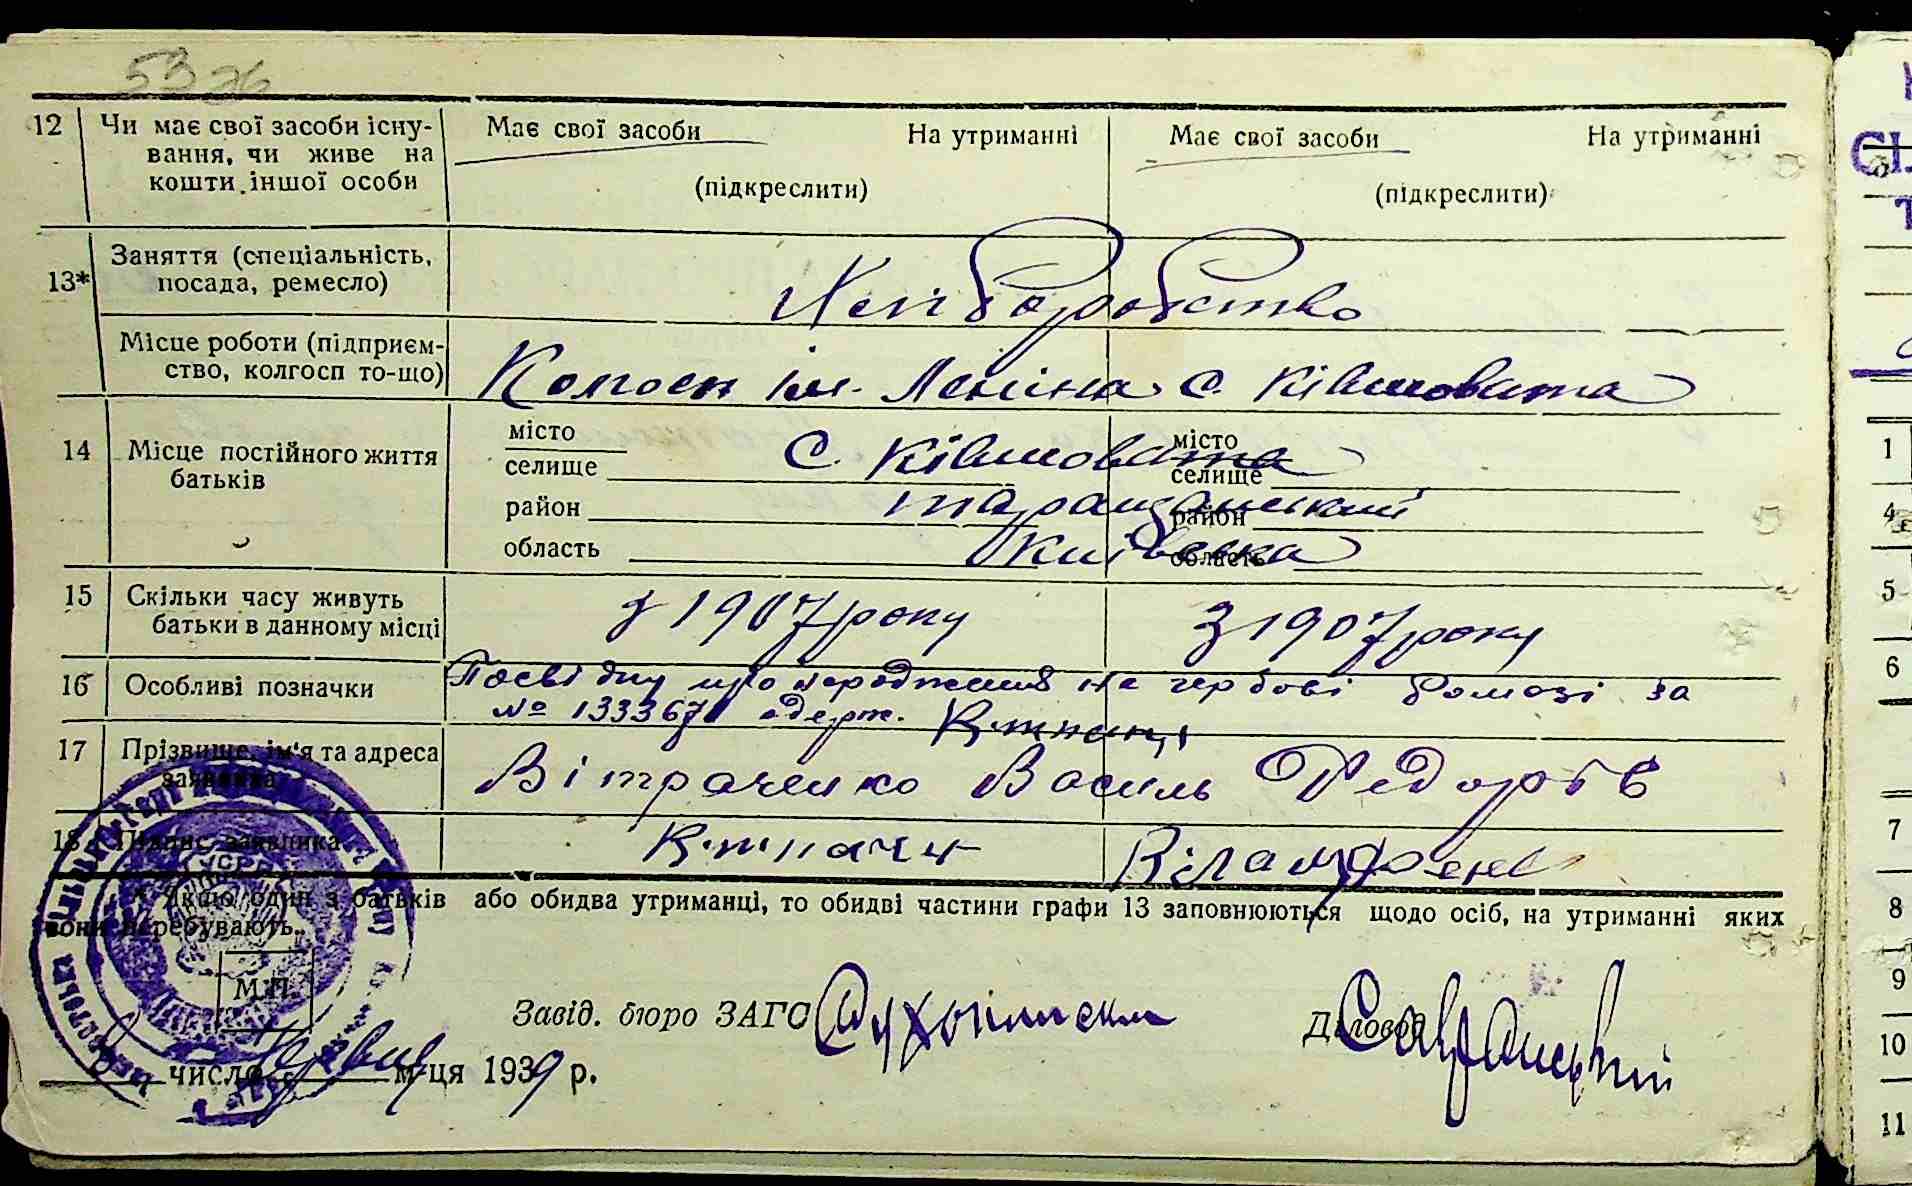 53 26
12 Чи має свої засоби існу- Має свої засоби На утриманні Має свої засоби На утриманні
вання, чи живе на
кошти іншої особи (підкреслити) (підкреслити)
13* Заняття (спеціальність, посада, ремесло) Хліборобство
Місце роботи (підприєм-
ство, колгосп то-що) Колгосп ім. Леніна с. Ківшовата
14 Місце постійного життя батьків
місто місто
селище с. Ківшовата селище
район Таращанський район
область Київська область
15 Скільки часу живуть
батьки в данному місці з 1907 року З 1907 року
16 Особливі позначки Посвідку про народження на гербові бомозі за
№ 133367 одерж.
17 Прізвище, ім'я та адреса
заявника Вітраченко Василь Федорів
18 Підпис заявника
* Якщо один з батьків або обидва утриманці, то обидві частини графи 13 заповнюються щодо осіб, на утриманні яких
вони перебувають.
М.П.
Завід. бюро ЗАГС Діловод
число Червня м-ця 1939 р.
СІЛ
1
4
5
6
7
8
9
10
11